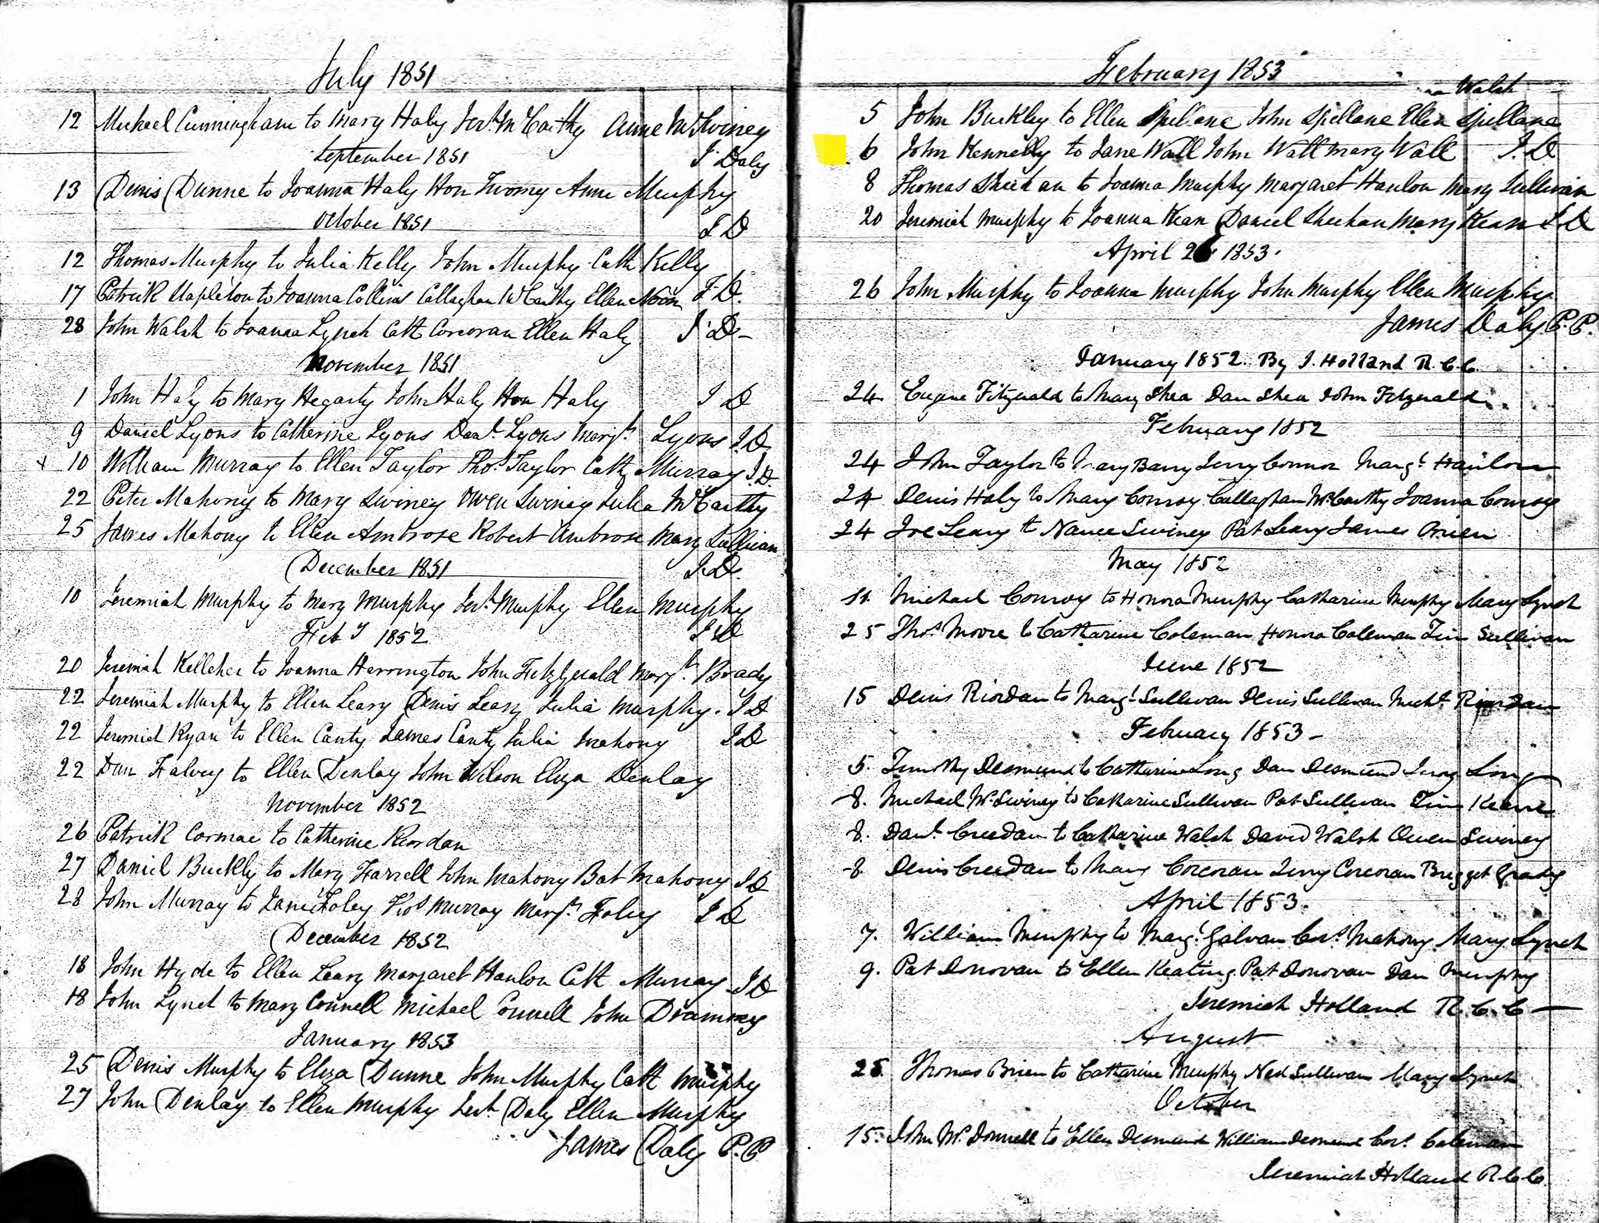 July 1851
12 Michael Cunningham to Mary Haly Jerh McCarthy Anne McSwiney
September 1851 J. Daly
13 Denis Dunne to Joanna Haly Hon Twomy Anne Murphy
October 1851 J D
12 Thomas Murphy to Julia Kelly John Murphy Cath Kelly
17 Patrick Stapleton to Joanna Collins Callaghan McCarthy Ellen J. D.
28 John Walsh to Joanna Lynch Cath Corcoran Ellen Haly J. D -
November 1851
1 John Haly to Mary Hegarty John Haly Hon Haly J D
9 Daniel Lyons to Catherine Lyons Danl Lyons Margt Lyons J.D
x 10 William Murray to Ellen Taylor Thos Taylor Cath Murray J.D
22 Peter Mahony to Mary Swiney Owen Swiney Julia McCarthy
25 James Mahony to Ellen Ambrose Robert Ambrose Mary Sullivan
December 1851 J.D.
10 Jeremiah Murphy to Mary Murphy Jerh Murphy Ellen Murphy
Feby 1852 J D
20 Jeremiah Kelleher to Joanna Herrington John FitzGerald Margt Brady
22 Jeremiah Murphy to Ellen Leary Denis Leary Julia Murphy. J D
22 Jeremiah Ryan to Ellen Canty James Canty Julia Mahony J D
22 Dan Halvey to Ellen Denlay John Wilson Eliza Denlay
November 1852
26 Patrick Cormac to Catherine Riordan
27 Daniel Buckly to Mary Farrell John Mahony Bat Mahony J D
28 John Murray to Jane Foley Thos Murray Margt Foley J D
December 1852
18 John Hyde to Ellen Leary Margaret Hanlon Cath Murray J D
18 John Lynch to Mary Connell Michael Connell John
January 1853
25 Denis Murphy to Eliza Dunne John Murphy Cath Murphy
27 John Denlay to Ellen Murphy Jerh Daly Ellen Murphy
James Daly P.P
February 1853
Walsh
5 John Buckley to Ellen Spillane John Spillane Ellen Spillane
6 John Kennelly to Jane Wall John Wall Mary Wall J. D
8 Thomas Sheehan to Joanna Murphy Margaret Hanlon Mary Sullivan
20 Jeremiah Murphy to Joanna Kean Daniel Sheehan Mary Kean J D
April 26 1853.
26 John Murphy to Joanna Murphy John Murphy Ellen Murphy
James Daly P.P.
January 1852. By J. Holland R.C.C.
24 Eugene Fitzgerald to Mary Shea Dan Shea John Fitzgerald
February 1852
24 John Taylor to Mary Barry Jerry Connor Margt Hanlon
24 Denis Haly to Mary Conroy Callaghan McCarthy Joanna Conroy
24 Joe Leary to Nance Swiney Pat Leary James
May 1852
11 Michael Conroy to Honora Murphy Catharine Murphy Mary Lynch
25 Thos Moore to Catharine Coleman Honora Coleman Tim Sullivan
June 1852
15 Denis Riordan to Margt Sullivan Denis Sullivan Michl Riordan
February 1853 -
5. Timothy Desmond to Catharine Long Dan Desmond Jerry Long
8. Michael McSwiney to Catharine Sullivan Pat Sullivan Tim Keane
8. Danl Creedan to Catharine Walsh David Walsh Owen Swiney
8 Denis Creedan to Mary Corcoran Jerry Corcoran Bridget Grady
April 1853.
7. William Murphy to Margt Galvan Cors Mahony Mary Lynch
9. Pat Donovan to Ellen Keating Pat Donovan Dan Murphy
Jeremiah Holland R.C.C -
August
25 Thomas Brien to Catharine Murphy Ned Sullivan Mary Lynch
October
15. John McDonnell to Ellen Desmond William Desmond Cors Coleman
Jeremiah Holland R.C.C.